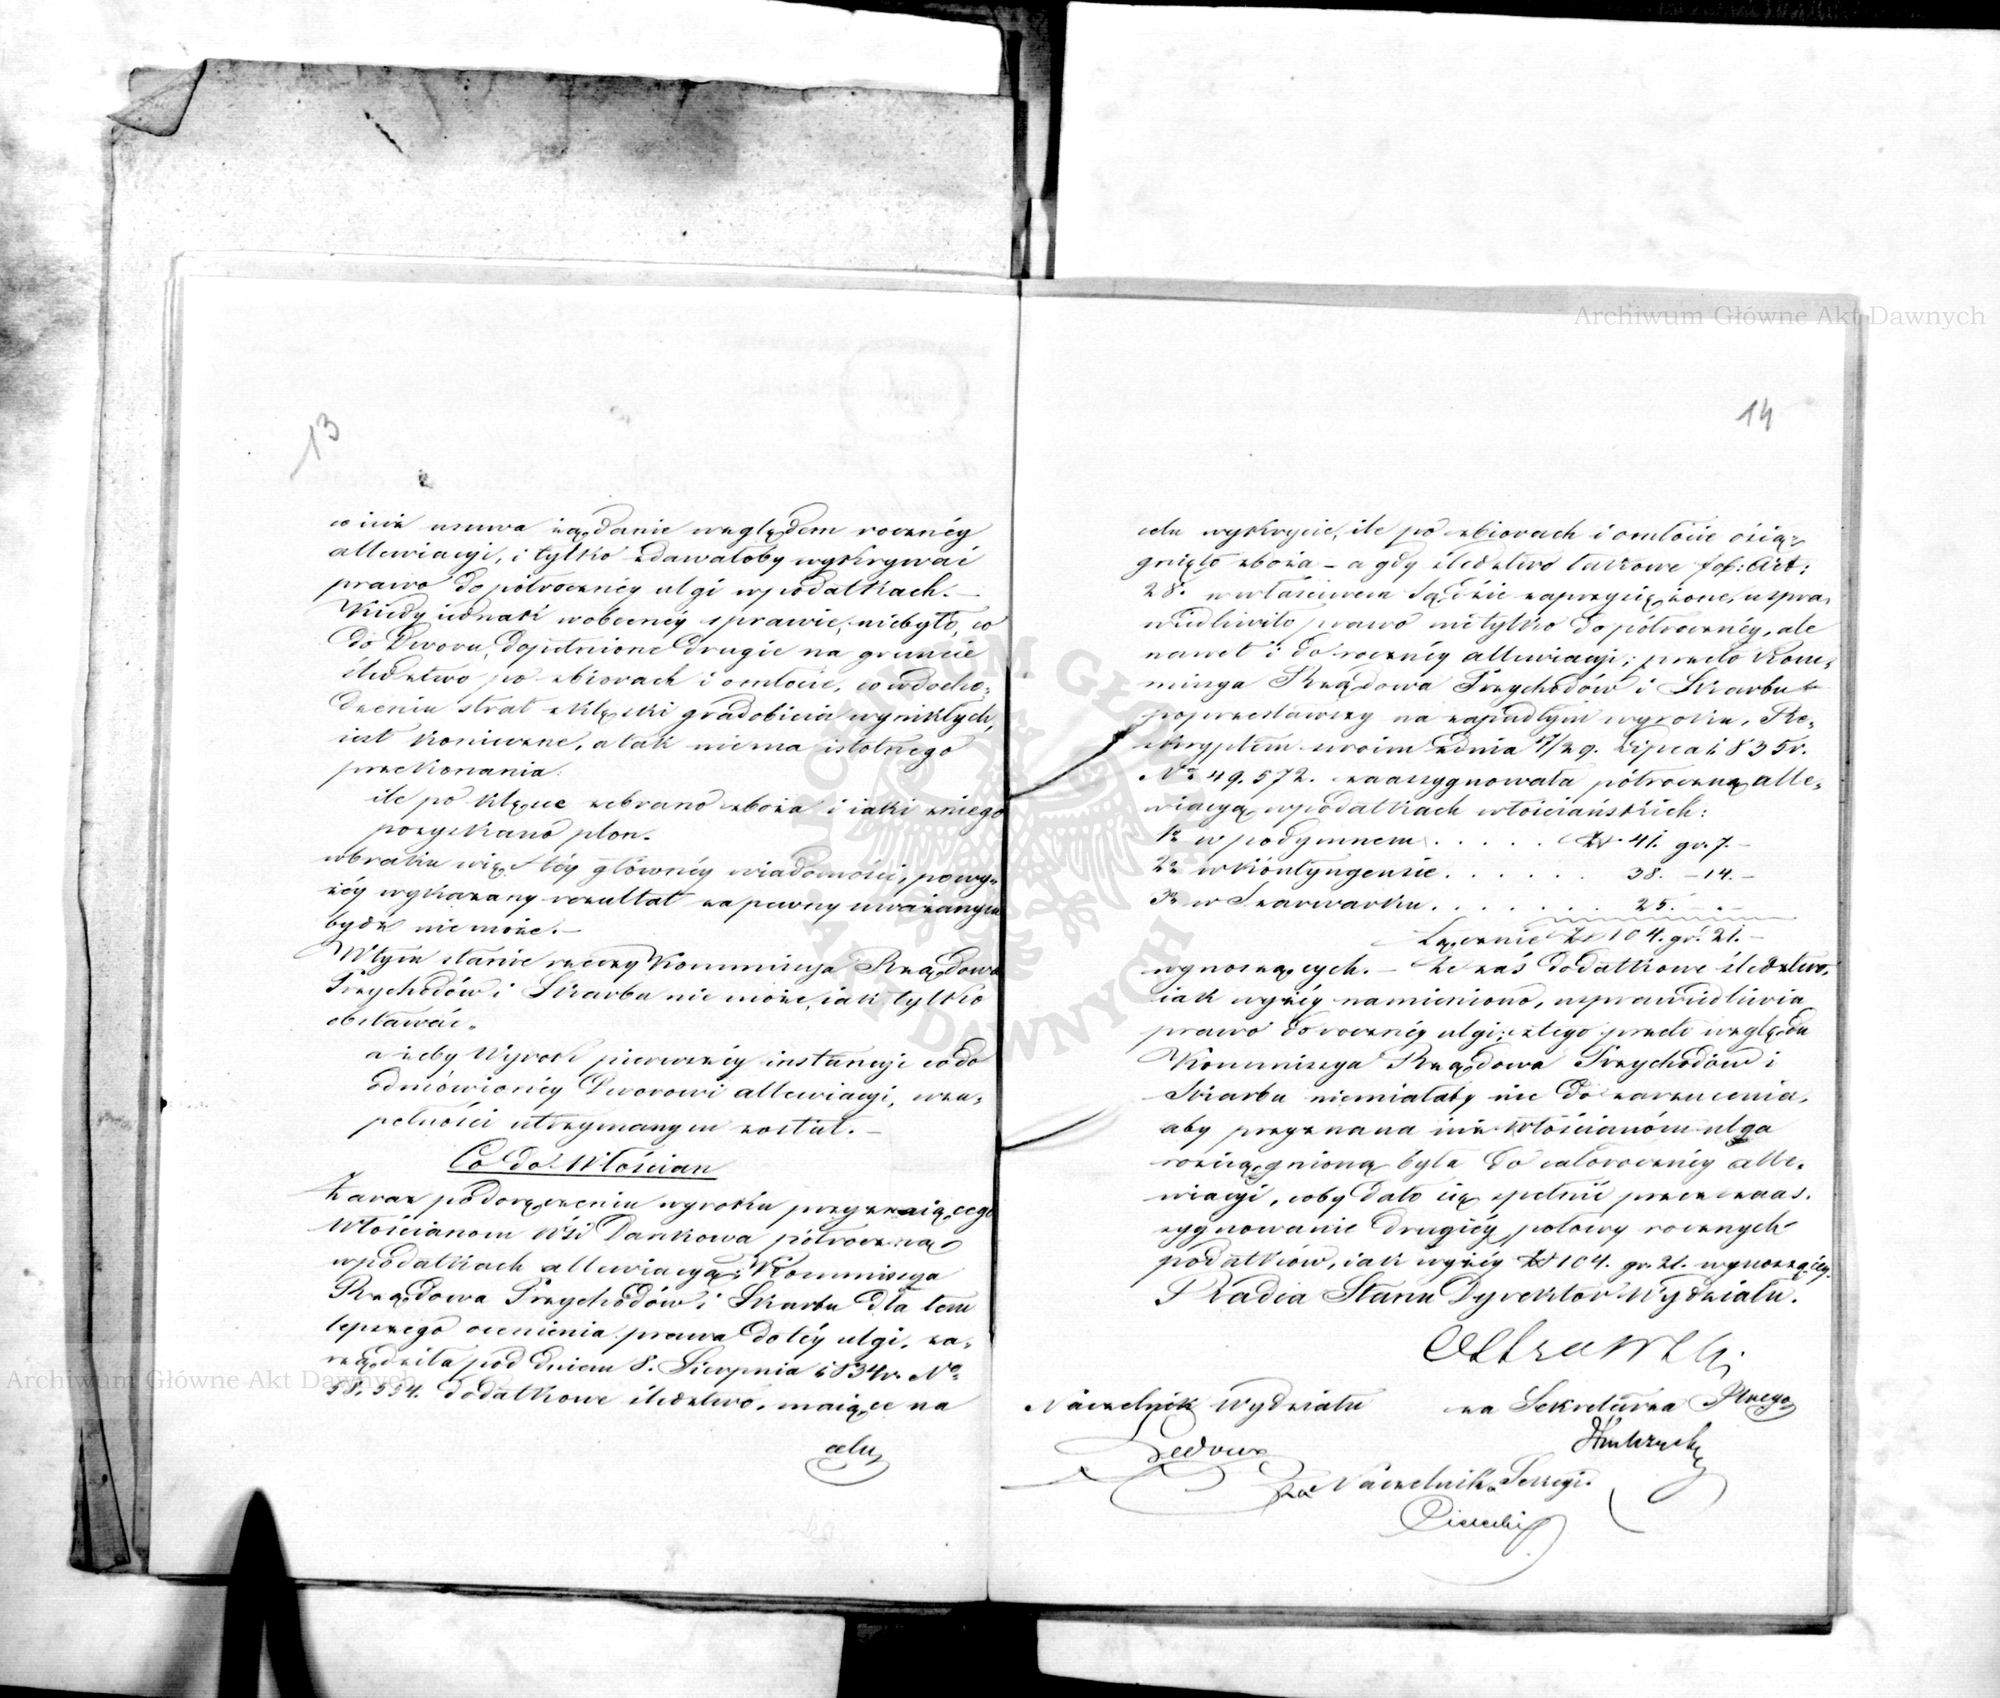 13
co iuż usuwa żądanie względem rocznéy
allewiacyi, i tylko zdawałoby wyskrywać
prawo do półrocznéy ulgi w podatkach. —
Kiedy iednak w obecnéy sprawie, niebyło, co
do Dworu, dopełnione drugie na gruncie
śledztwo po zbiorach i omłocie, co w docho-
dzeniu strat z klęski gradobicia wynikłych,
iest konieczne, a tak niema istotnego
przekonania:
ile po klęsce zebrano zboża i iaki z niego
pozyskano plon.
w braku więc téy głównéy wiadomości, powy-
żéy wykazany rezultat za pewny uważanym
bydź nie może. —
W tym stanie rzeczy Kommissya Rządowa
Przychodów i Skarbu nie może, iak tylko
obstawać.
ażeby Wyrok pierwszéy instancyi co do
odmówionéy Dworowi allewiacyi, w zu-
pełności utrzymanym został. —
Co do Włościan
Zaraz po doręczeniu wyroku przyznaiącego
Włościanom Wsi Dankowa półroczną
w podatkach allewiacyą; Kommissya
Rządowa Przychodów i Skarbu dla tem
lepszego ocenienia prawa do téy ulgi, za-
rządziła pod dniem 8. Sierpnia 1834 r. No
58,554. dodatkowe śledztwo, maiące na
celu
14
celu wyskrycie, ile po zbiorach i omłocie osią-
gnięto zboża — a gdy śledztwo takowe Art:
28. w właściwem Sądzie zaprzysiężone, uspra-
widliwiło prawo nietylko do półrocznéy, ale
nawet i do rocznéy allewiacyi; przeto Kom-
missya Rządowa Przychodów i Skarbu
poprzestawszy na zapadłym wyroku, Re-
skryptem swoim z dnia 17/29. Lipca 1835 r.
No 49,572. zaassygnowała półroczną alle-
wiacyą w podatkach włościańskich:
1o w podymnem . . . . . Zł. 41. gr. 7. —
2o w Kontyngensie . . . . . . 38. — 14. —
3o w Szarwarku . . . . . . . 25. — —
Łącznie Zł 104. gr. 21. —
wynoszących. — Że zaś dodatkowe śledztwo,
iak wyżéy namieniono, usprawidliwia
prawo do rocznéy ulgi; z tego przeto względu
Kommissya Rządowa Przychodów i
Skarbu niemiałaby nic do zarzucenia,
aby przyznana iuż Włościanom ulga
rozciągnioną była do całorocznéy alle-
wiacyi, coby dało się spełnić przez zaas-
sygnowanie drugiéy połowy rocznych
podatków, iak wyżéy Zł 104. gr. 21. wynoszącéy.
Radca Stanu Dyrektor Wydziału.
Naczelnik Wydziału
za Sekretarza Jlnego
za Naczelnika Sekcyi.
Archiwum Główne Akt Dawnych
Archiwum Główne Akt Dawnych
ARCHIWUM GŁÓWNE AKT DAWNYCH